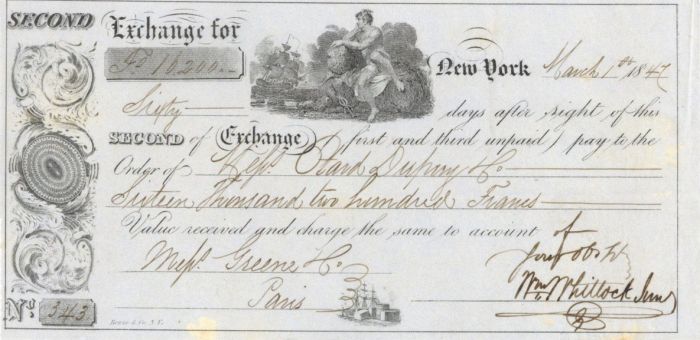 SECOND
Exchange for
Fs 16200.—
New York March 1st 1847
Sixty days after sight of this
SECOND of Exchange (first and third unpaid) pay to the
Order of Messrs. Otard Dupuy & Co.
Sixteen Thousand two hundred Francs
Value received and charge the same to account of
Messrs. Greene & Co. your Obt St
Paris Wm. Whitlock Junr
No. 343